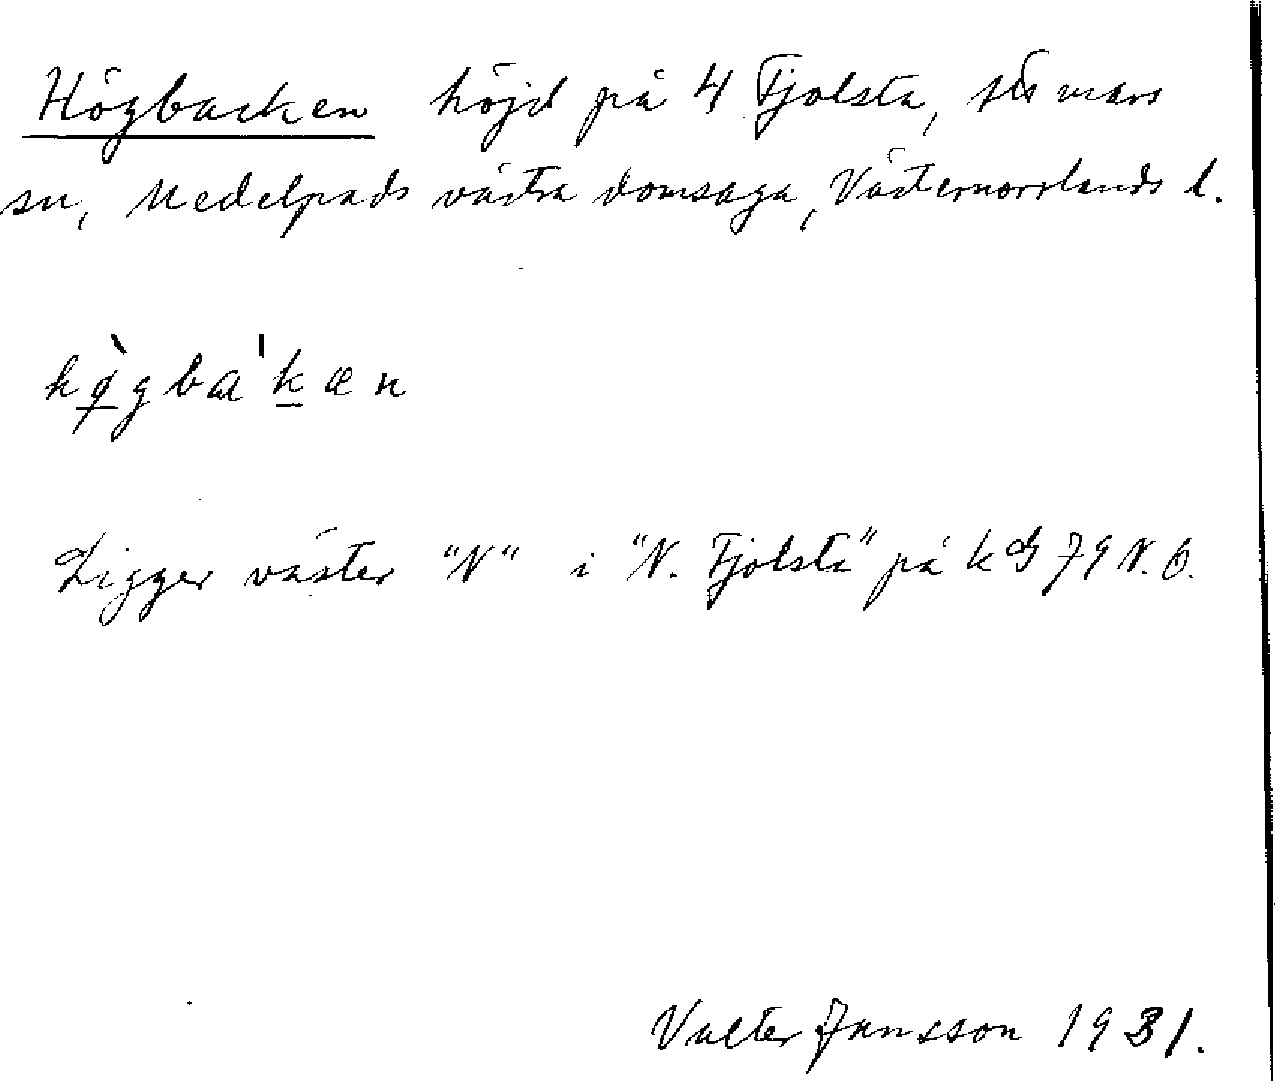 Högbacken höjd på 4 Fjolsta, mars
sn, Medelpads västra domsaga, Västernorrlands l.
hø̀gba'kæn
Ligger väster "N" i "N. Fjolsta" på kbl 79 N.O.
Valter Jansson 1931.